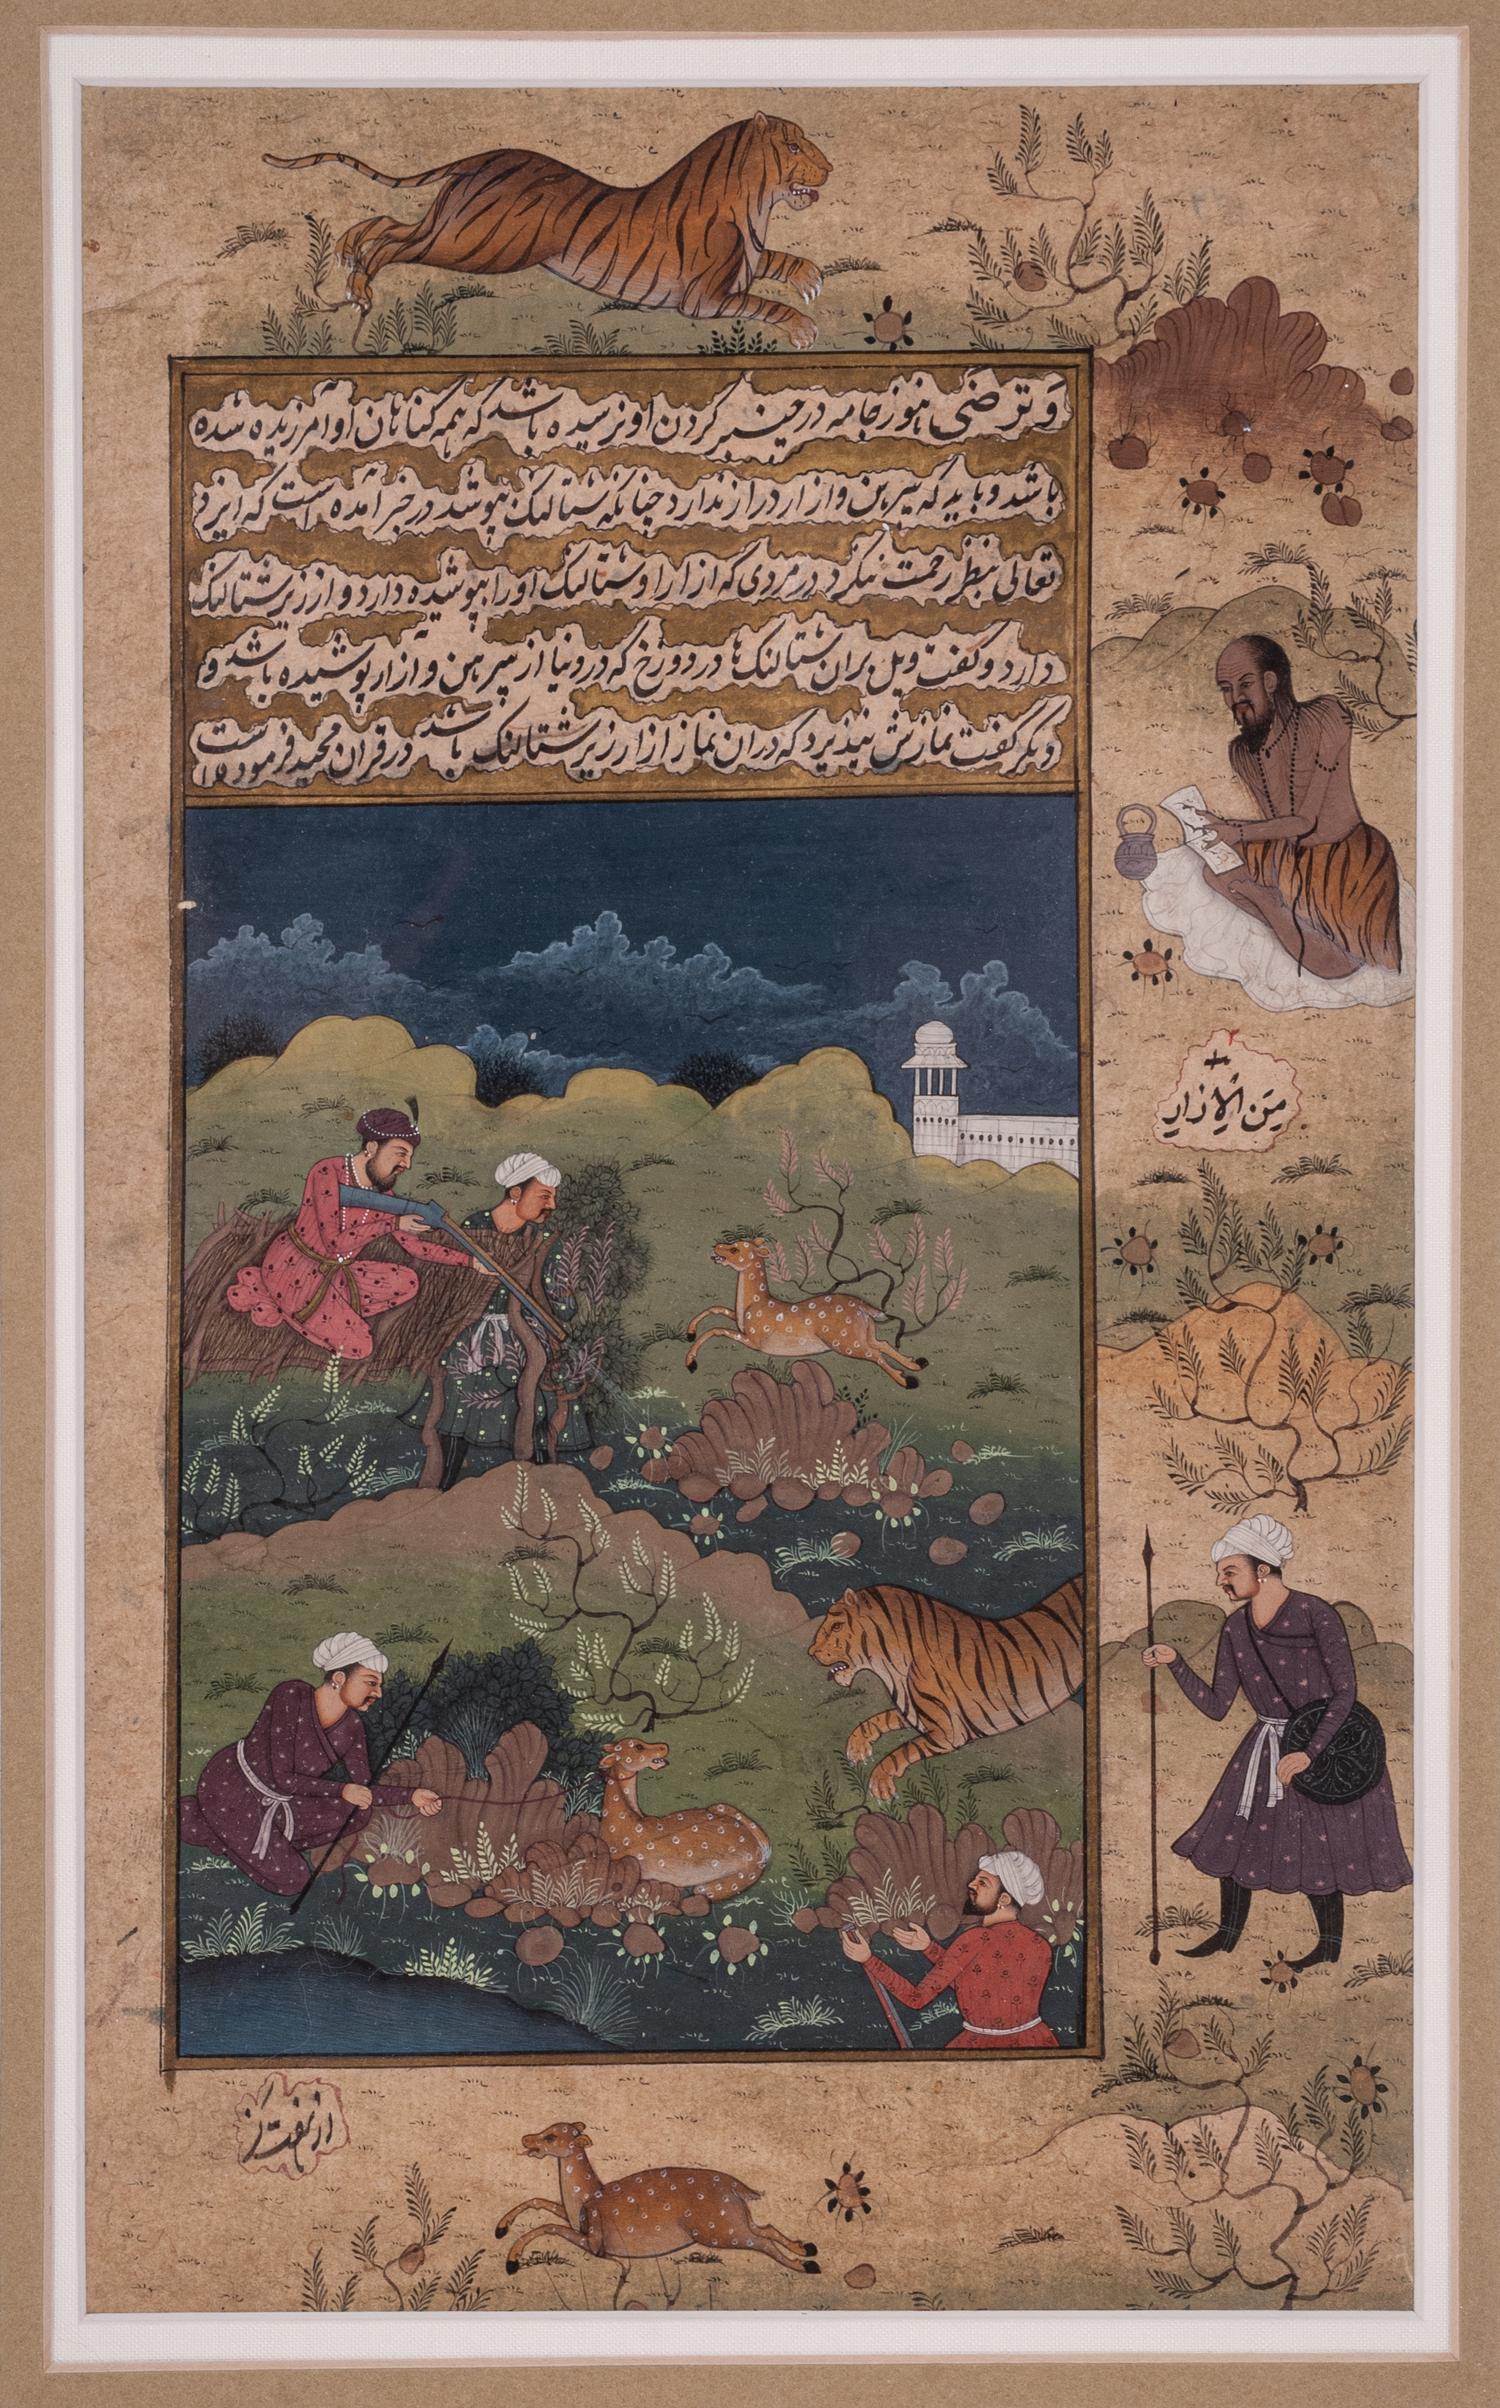 و ترضی هنوز جامه در حین سیر کردن او نرسیده باشد که همه کناهان او آمرزیده شده
باشد و باید که پیرهن و ازار دراز ندارد چنانکه شتالنگ بپوشد در خبر آمده است که ایزد
تعالی بنظر رحمت ننگرد در مردی که ازار او شتالنک او را بپوشیده دارد و از زیر شتالنک
دارد و گفت ویل بران شتالنک‌ها در دوزخ که در دنیا از پیرهن و ازار پوشیده باشد و
دیگر گفت نمازش نپذیرد که دران نماز ازار زیر شتالنک باشد در قران مجید فرموده است
مِن الاِزارِ